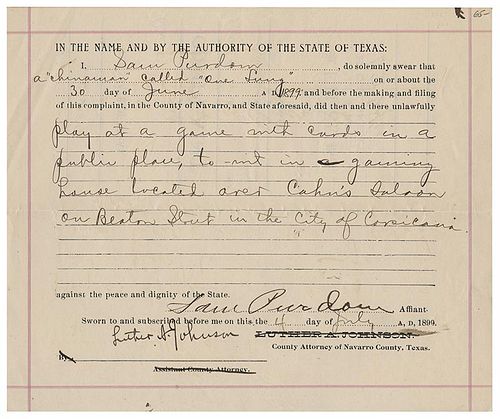 65-
IN THE NAME AND BY THE AUTHORITY OF THE STATE OF TEXAS:
I, Sam Purdom, do solemnly swear that
a "chinaman" called "One Lung" on or about the
30 day of June A D 1899 and before the making and filing
of this complaint, in the County of Navarro, and State aforesaid, did then and there unlawfully
play at a game with cards in a
public place, to-wit in a gaming
house located over Cahn's Saloon
on Beaton Street in the City of Corsicana
against the peace and dignity of the State.
Sam Purdom Affiant.
Sworn to and subscribed before me on this the 4 day of July A, D, 1899.
Luther A. Johnson LUTHER A. JOHNSON,
County Attorney of Navarro County, Texas.
By
Assistant County Attorney.